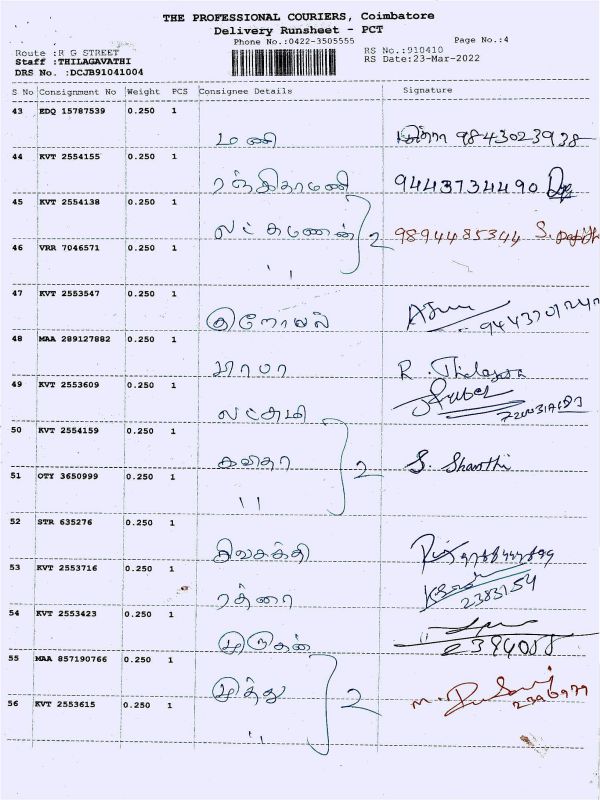 THE PROFESSIONAL COURIERS, Coimbatore
Delivery Runsheet - PCT
Phone No.:0422-3505555 Page No.:4
Route :R G STREET RS No.:910410
Staff :THILAGAVATHI RS Date:23-Mar-2022
DRS No. :DCJB91041004
S No Consignment No Weight PCS Consignee Details Signature
43 EDQ 15787539 0.250 1
மணி 9843023938
44 KVT 2554155 0.250 1
ரஞ்சிதாமணி 9443734490
45 KVT 2554138 0.250 1
லட்சுமணன் 2 9894485344 S.
46 VRR 7046571 0.250 1
"
47 KVT 2553547 0.250 1
48 MAA 289127882 0.250 1
பாபா R. Thilagavathi
49 KVT 2553609 0.250 1
லட்சுமி
50 KVT 2554159 0.250 1
கவிதா 2 S. Shanthi
51 OTY 3650999 0.250 1
"
52 STR 635276 0.250 1
சிவசக்தி
53 KVT 2553716 0.250 1
2383154
54 KVT 2553423 0.250 1
முருகன் 2394088
55 MAA 857190766 0.250 1
முத்து 2 M.
56 KVT 2553615 0.250 1
"